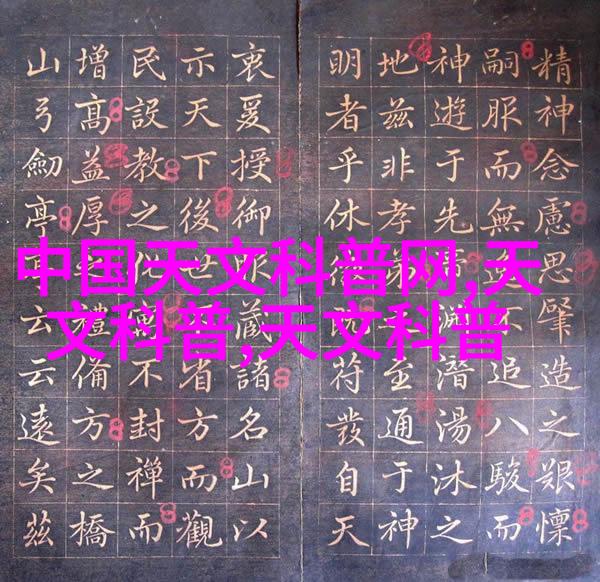 中国天文科普网,天
文科普,天文科普
精神念慮思肇造之艱懔
嗣服而無逸不追八駿而
神遊于先潛湯沐之
地茲非孝弟至通于神
明者乎休符發自天
衷爰授御服藏諸名山以
示天下後世省方而觀
民設教之不封禪而
增高益厚禮備方之橋
山弓劍亭云云遠矣茲